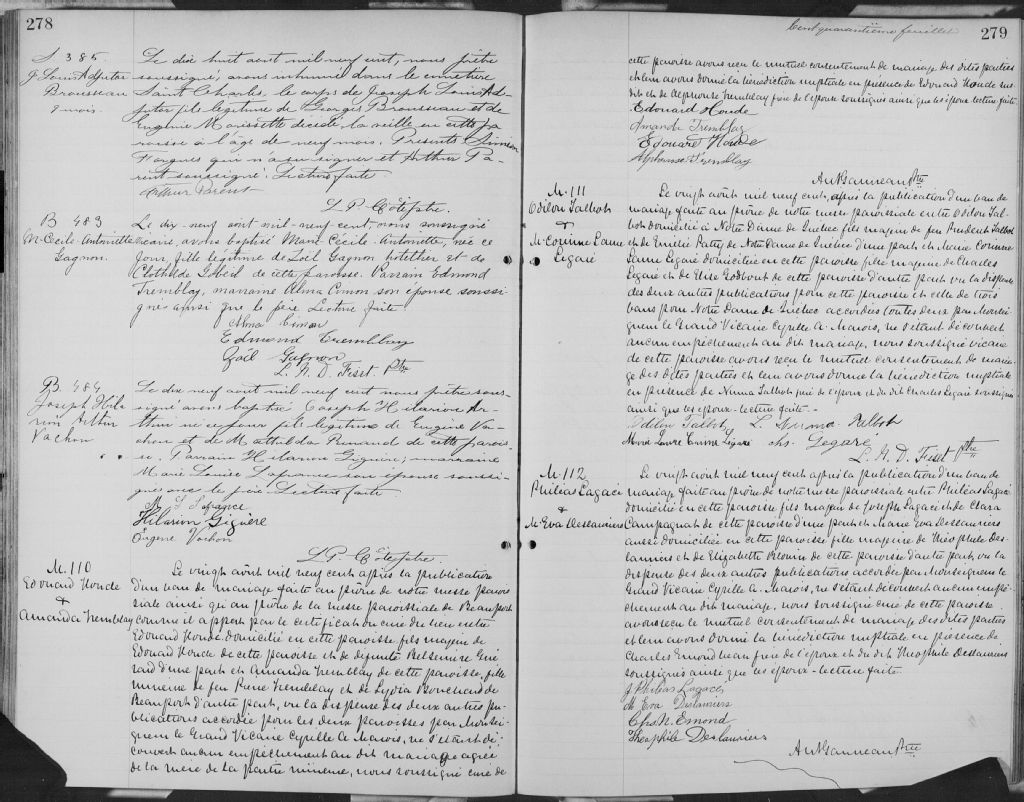 278
S 385
J. Louis Adjutor
Brousseau
9 mois.
Le dix huit août mil neuf cent, nous prêtre
soussigné, avons inhumé dans le cimetière
Saint Charles, le corps de Joseph Louis Ad-
jutor fils légitime de Georges Brousseau et de
Eugénie Morissette décédé la veille en cette pa
roisse à l'âge de neuf mois. Présents
qui n'a su signer et Arthur Pa-
rent soussigné. Lecture faite
Arthur Parent
L. P. Côté ptre.
B 483
M. Cécile-Antoinette
Gagnon.
Le dix-neuf août mil-neuf-cent, nous soussigné
vicaire, avons baptisé Marie Cécile-Antoinette, née ce
jour, fille légitime de Zoël Gagnon hôtellier et de
Clothilde de cette paroisse. Parrain Edmond
Tremblay, marraine Alma Cimon son épouse soussi
gnés ainsi que le père. Lecture faite.
Alma Cimon
Edmond Tremblay
Zoël Gagnon
L. A. D. Fiset Ptre
B 484
Joseph Hila
rion Arthur
Vachon
Le dix neuf août mil neuf cent nous prêtre sous-
signé avons baptisé Joseph Hilarion Ar-
thur né ce jour fils légitime de Eugène Va-
chon et de Mathilda Renaud de cette parois-
se. Parrain Hilarion Giguère; marraine
Marie Louise Lafrance son épouse soussi-
gnés avec le père. Lecture faite
M L Lafrance
Hilarion Gigière
Eugène Vachon
L. P. Côté ptre.
M. 110
Edouard Houde
&
Amanda Tremblay
Le vingt août mil neuf cent après la publication
d'un ban de mariage faite au prône de notre messe parois
siale ainsi qu'au prône de la messe paroissiale de Beauport
comme il appert par le certificat du curé du lieu entre
Edouard Houde domicilié en cette paroisse, fils majeur de
Edouard Houde de cette paroisse et de défunte Belsémire Gué
rard d'une part et Amanda Tremblay de cette paroisse, fille
mineure de feu Pierre Tremblay et de Lydia Bouchard de
Beauport d'autre part, vu la dispense des deux autres pu-
blications accordée pour les deux paroisses par Monsei-
gneur le Grand Vicaire Cyrille A. Marois, ne s'étant dé-
couvert aucun empêchement au dit mariage agréé
de la mère de la partie mineure, nous soussigné curé de
Cent quarantième feuillet
279
cette paroisse avons reçu le mutuel consentement de mariage des dites parties
et leur avons donné la bénédiction nuptiale en présence de Edouard Houde sus
dit et de Alphonse Tremblay frère de l'épouse soussignés ainsi que les époux. Lecture faite
Edouard Houde
Amanda Tremblay
Edouard Houde
Alphonse Tremblay
Ptre
M. 111
Odilon Talbot
&
M. Corinne Laure
Légaré
Le vingt août mil neuf cent, après la publication d'un ban de
mariage faite au prône de notre messe paroissiale entre Odilon Tal-
bot domicilié à Notre Dame de Québec fils majeur de feu Prudent Talbot
et de Emilie Patry de Notre Dame de Québec d'une part et Marie Corinne
Laure Légaré domiciliée en cette paroisse fille majeure de Charles
Légaré et de Elise Godbout de cette paroisse d'autre part vu la dispense
des deux autres publications pour cette paroisse et celle de trois
bans pour Notre Dame de Québec accordées toutes deux par Monsei-
gneur le Grand Vicaire Cyrille A. Marois, ne s'étant découvert
aucun empêchement au dit mariage, nous soussigné vicaire
de cette paroisse avons reçu le mutuel consentement de maria-
ge des dites parties et leur avons donné la bénédiction nuptiale
en présence de Numa Talbot de l'époux et du dit Charles Légaré soussignés
ainsi que les époux - lecture faite.
Odilon Talbot L. Numa Talbot
Marie Laure Corinne Légaré Chs. Legaré
L. A. D. Fiset Ptre
M. 112
Philias Lagacé
&
M. Eva Deslauriers
Le vingt août mil neuf cent après la publication d'un ban de
mariage faite au prône de notre messe paroissiale entre Philias Lagacé
domicilié en cette paroisse fils majeur de Joseph Lagacé et de Clara
Campagna de cette paroisse d'une part et Marie Eva Deslauriers
aussi domiciliée en cette paroisse fille majeure de Théophile Des-
lauriers et de Elizabeth Blouin de cette paroisse d'autre part, vu la
dispense des deux autres publications accordée par Monseigneur le
Grand Vicaire Cyrille A. Marois, ne s'étant découvert aucun empê-
chement au dit mariage, nous soussigné curé de cette paroisse
avons reçu le mutuel consentement de mariage des dites parties
et leur avons donné la bénédiction nuptiale en présence de
Charles Emond beau frère de l'époux et du dit Théophile Deslauriers
soussignés ainsi que les époux - lecture faite.
J Philias Lagacé
M Eva Deslauriers
Chs N. Emond
Théophile Deslauriers
Ptre